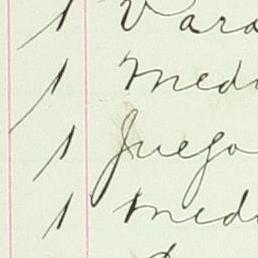 1 Vara
1 Medi
1 Juego
1 Medi